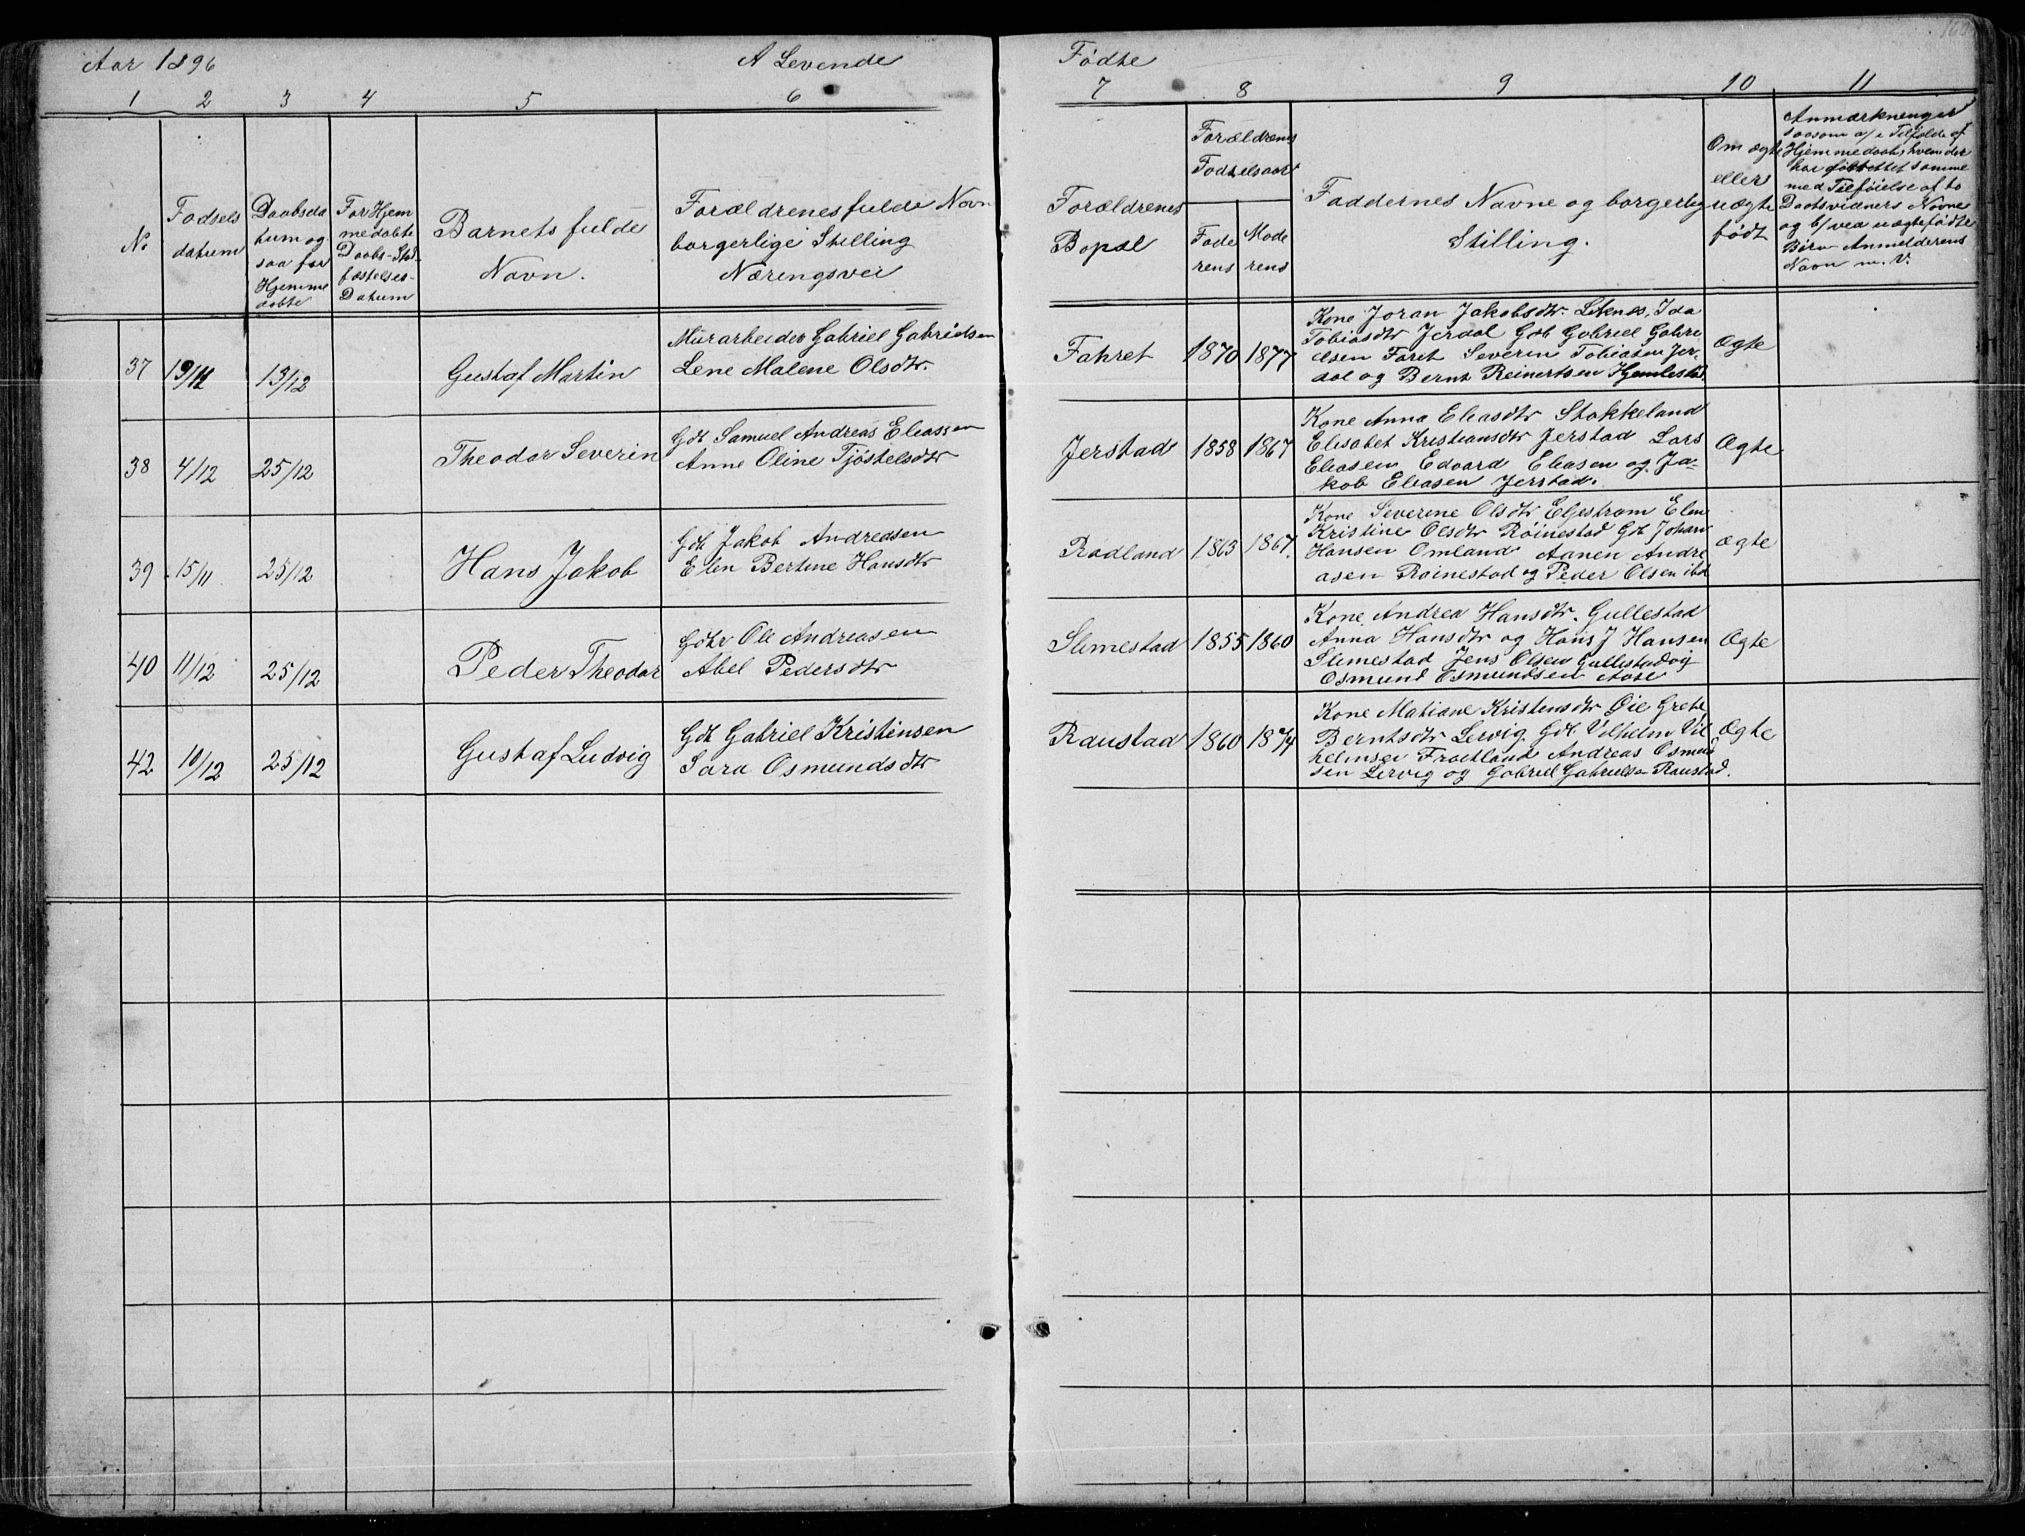 Aar 1896 A Levende Fødte
1 2 3 4 5 6 7 8 9 10 11
No
Fødsels
datum
Daabsda
tum og
saa for
Hjemme
døbte
For Hjem
medøbte
Daabs-Stad
fæstelses-
Datum
Barnets fulde
Navn.
Forældrenes fulde Navn
borgerlige Stilling
Næringsvei
Forældrenes
Bopæl
Forældrenes
Fødselsaar
Fade
rens
Mode
rens
Faddernes Navne og borgerlig
Stilling.
Om ægte
eller
uægte
født
Anmærkninger
saasom a/ i Tilfælde af
Hjemmedaab, hvem der
har forrettet samme
med Tilføielse af to
Daabsvidners Navne
og b/ ved uægtefødte
Børn Anmelderens
Navn m. V.
37 19/11 13/12 Gustaf Martin
Murarbeider Gabriel Gabrielsen
Lene Malene Olsdtr.
Fahret 1870 1877
Kone Joran Jakobsdtr. Leknes, Ida
Tobiasdtr Jerdal Gdb Gabriel Gabri
elsen Faret Severin Tobiasen Jer
dal og Bernt Reinertsen Hjemlestad
Ægte
38 4/12 25/12 Theodor Severin
Gdb Samuel Andreas Eliassen
Anne Oline Tjøstelsdtr
Jerstad 1858 1867
Kone Anna Eliasdtr Stokkeland
Elisabet Kristiansdtr Jerstad Lars
Eliasen Edvard Eliasen og Ja-
kob Eliasen Jerstad.
Ægte
39 15/11 25/12 Hans Jakob
Gdb Jakob Andreasen
Elen Bertine Hansdtr
Rødland 1863 1867.
Kone Severine Olsdtr Eljestrøm Elen
Kristine Olsdtr Røinestad Gdb Johan
Hansen Omland Aanen Andre
asen Røinestad og Peder Olsen ibd
Ægte
40 11/12 25/12 Peder Theodor
Gdbr Ole Andreasen
Abel Pedersdtr
Slimestad 1855 1860
Kone Andrea Hansdtr. Gullestad
Anna Hansdtr og Hans J Hansen
Slimestad Jens Olsen Gullestad og
Osmund Osmundsen Aase
Ægte
42 10/12 25/12 Gustaf Ludvig
Gdb Gabriel Kristensen
Sara Osmundsdtr
Raustad 1860 1874
Kone Matiane Kristensdtr Øie Grete
Berntsdtr Lervig Gdb Vilhelm Vil
helmsen Frøitland Andreas Osmund
sen Lervig og Gabriel Gabrielsen Raustad.
Ægte